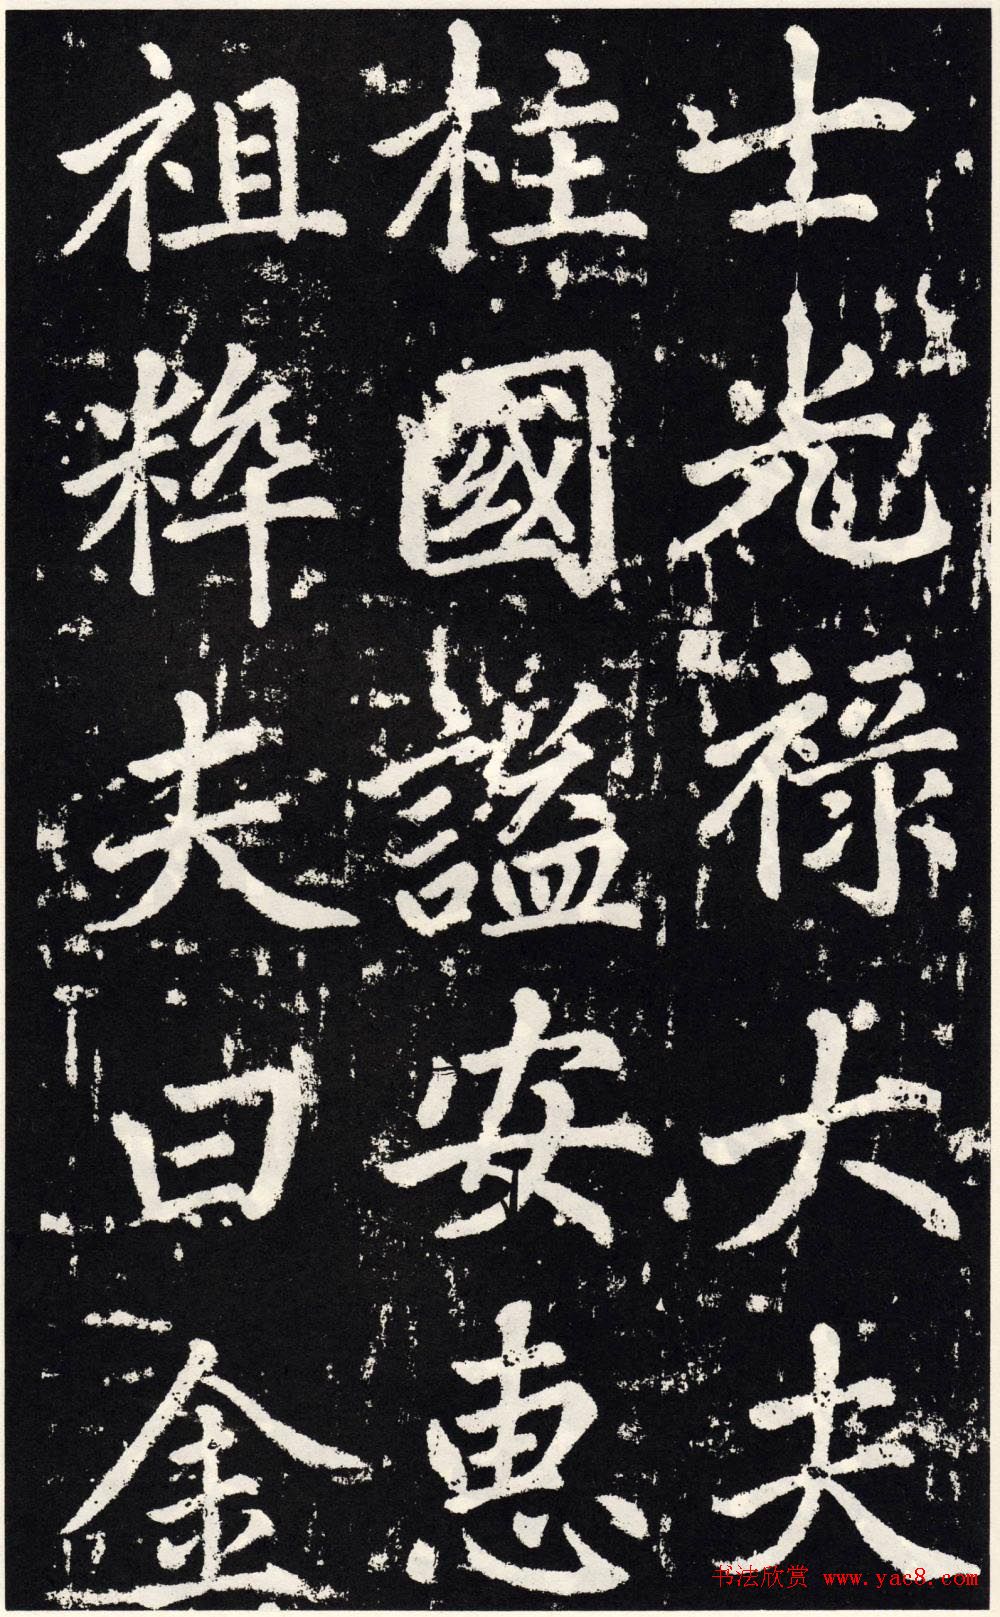 士光祿大夫
柱國謚安惠
祖粹夫曰金
书法欣赏 www.yac8.com